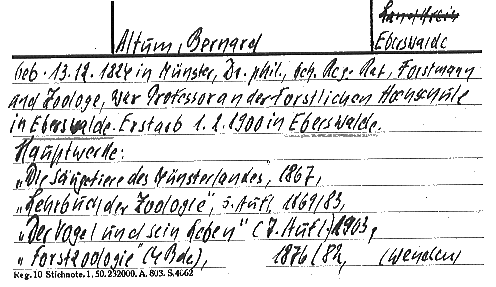 Landkreis
Altum, Bernard Eberswalde
geb. 13.12.1824 in Münster, Dr. phil., Geh. Reg. Rat, Forstmann
und Zoologe, war Professor an der Forstlichen Hochschule
in Eberswalde. Er starb 1.2.1900 in Eberswalde.
Hauptwerke:
„Die Säugetiere des Münsterlandes, 1867,
„Lehrbuch der Zoologie", 5. Aufl. 1869/83,
„Der Vogel und sein Leben" (7. Aufl.) 1903,
„Forstzoologie" (4 Bde), 1876/82, (wenden)
Reg. 10 Stichnote. 1, 50. 232000. A. 803. S. 4662